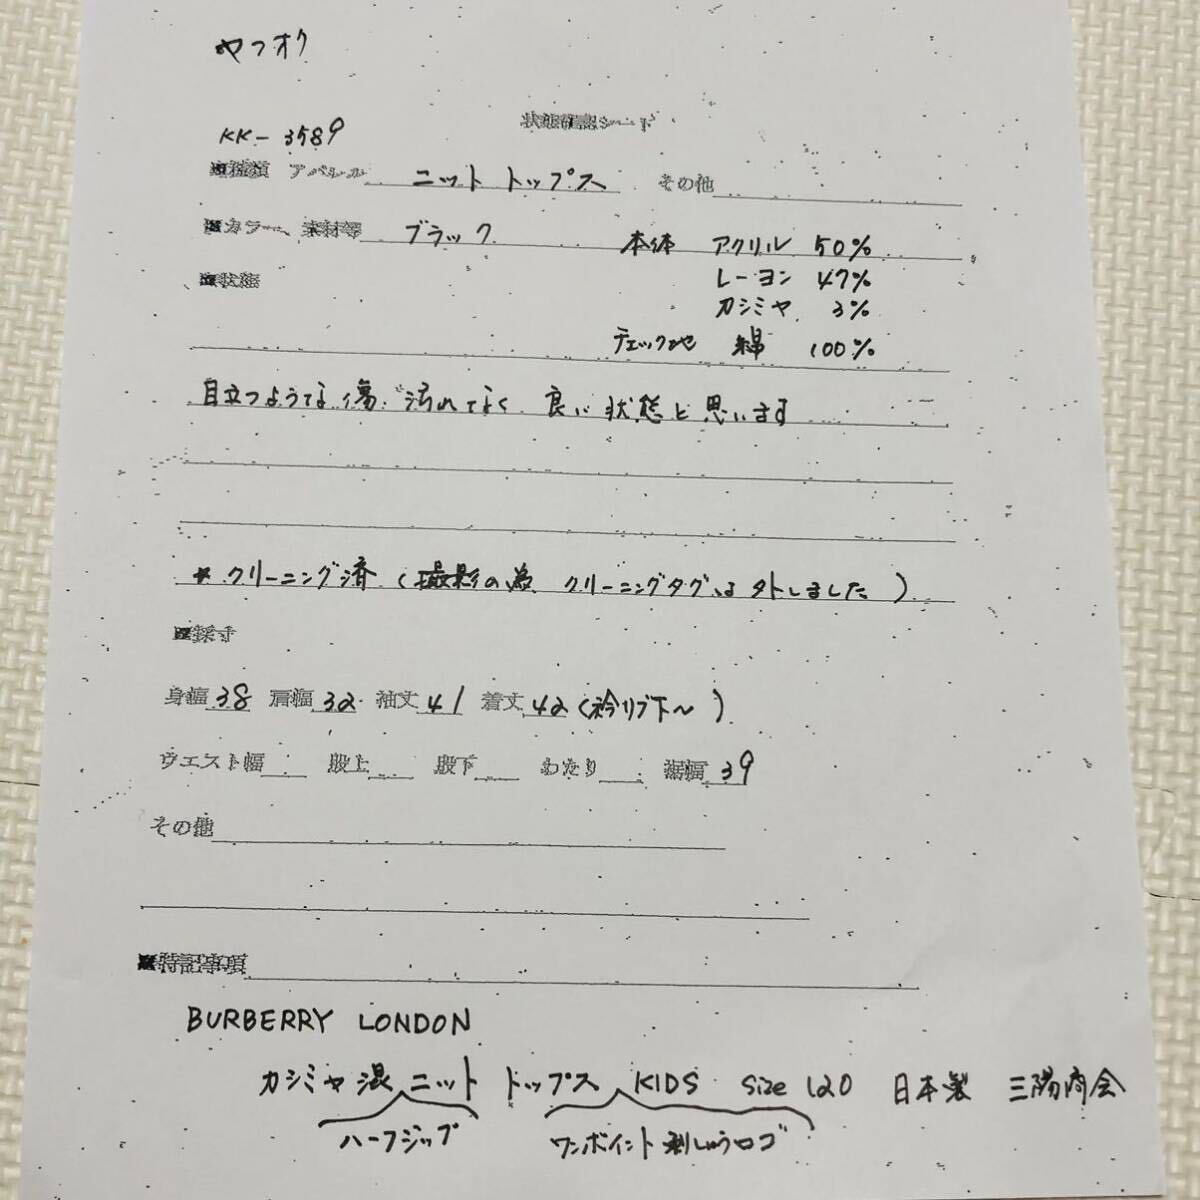 ヤフオク
状態確認シート
KK-3589
■種類 アパレル ニット トップス その他
■カラー、素材等 ブラック 本体 アクリル 50%
■状態 レーヨン 47%
カシミヤ 3%
チェック地 綿 100%
目立つような傷、汚れでなく 良い状態と思います
* クリーニング済 (撮影の為、クリーニングタグは外しました)
■採寸
身幅 38 肩幅 32 袖丈 41 着丈 42 (衿リブ下〜)
ウエスト幅 股上 股下 わたり 裾幅 39
その他
■特記事項
BURBERRY LONDON
カシミヤ混 ニット トップス KIDS size 120 日本製 三陽商会
ハーフジップ ワンポイント刺しゅうロゴ